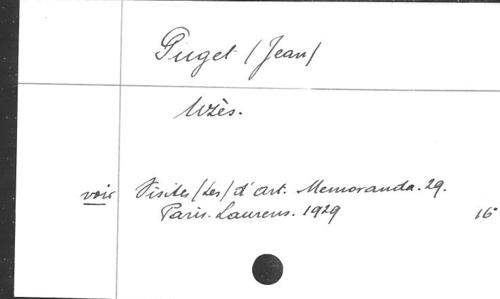 Puget (Jean)
Uzès.
voir Visites (Les) d'art. Memoranda. 29.
Paris. Laurens. 1929 16°